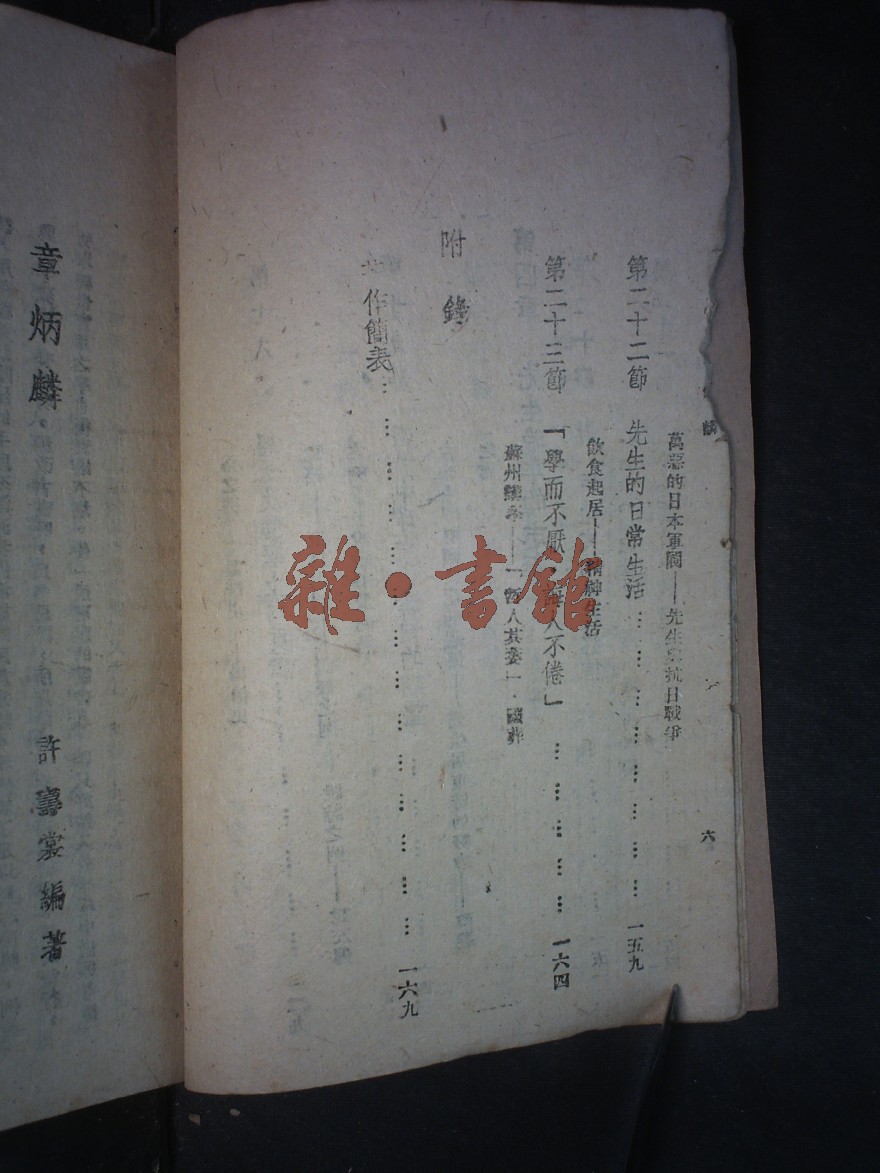 麟
六
萬惡的日本軍閥——先生與抗日戰爭
第二十二節 先生的日常生活 … … … … … … … … 一五九
飲食起居——精神生活
第二十三節 「學而不厭 誨人不倦」 … … … … … 一六四
蘇州講學——「哲人其萎」·國葬
附錄
作簡表 … … … … … … … … … … … … … 一六九
章炳麟
許壽裳編著
雜·書館